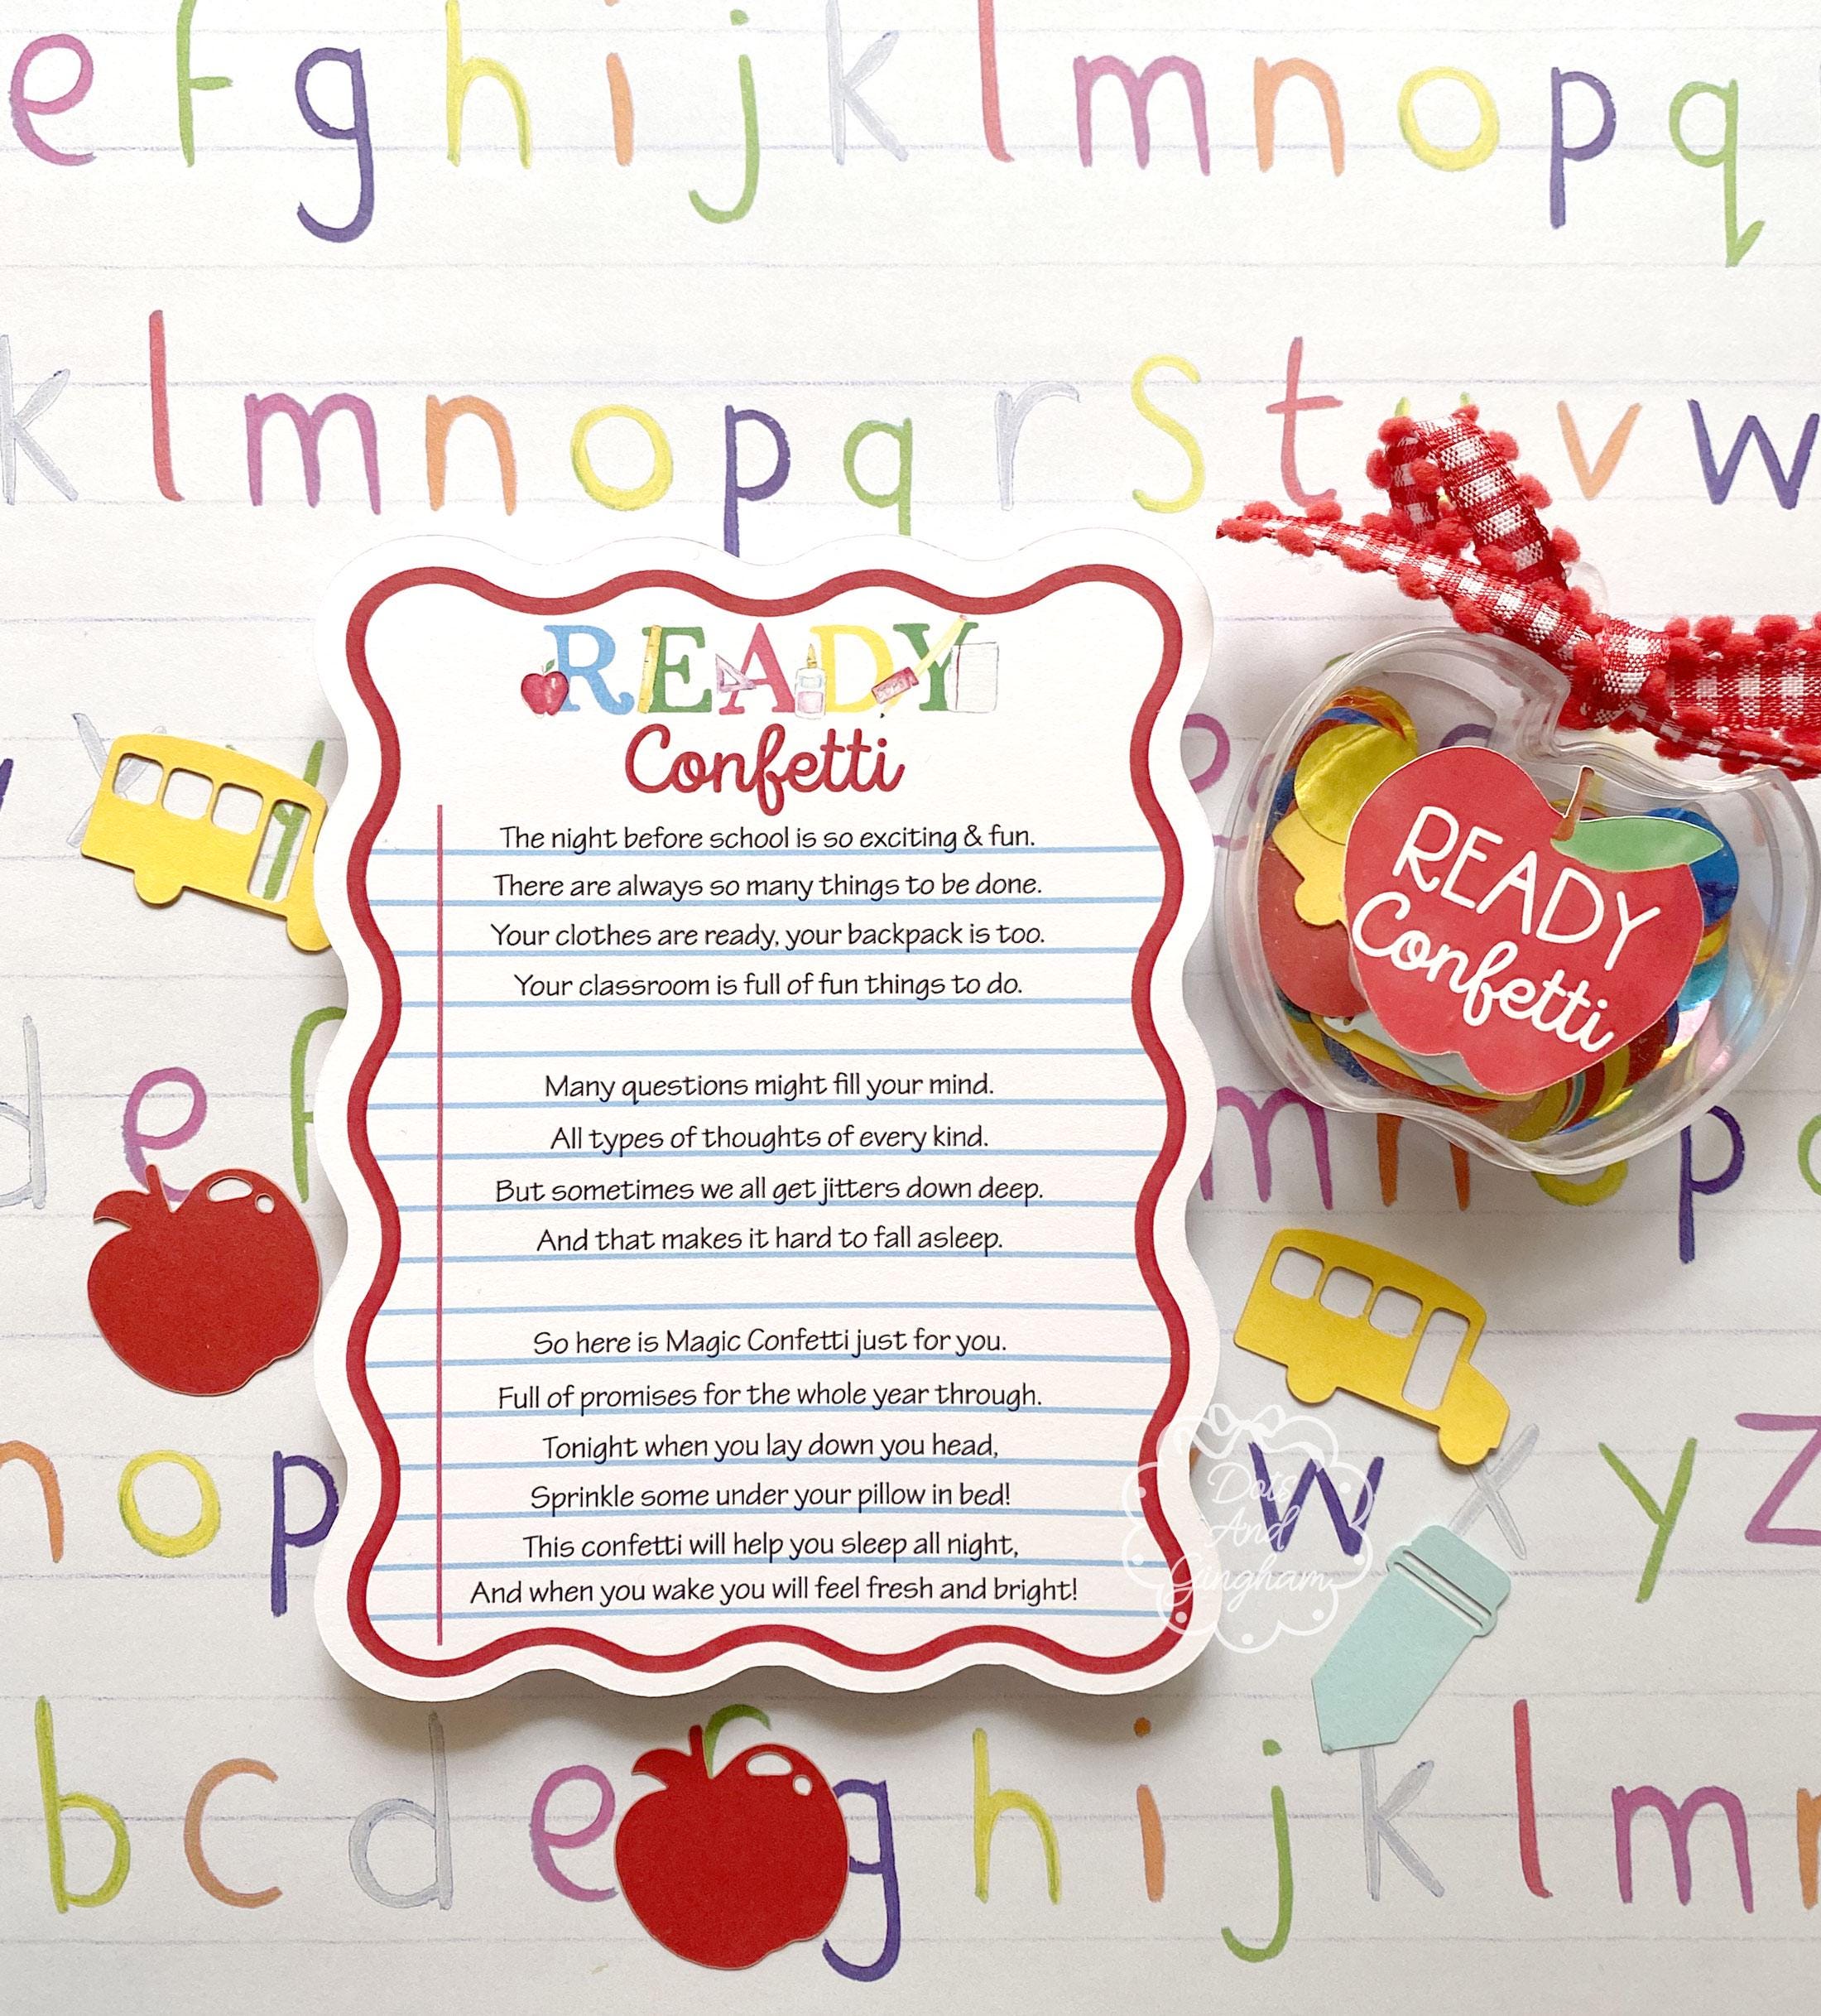 e f g h i j k l m n o p q
k l m n o p q r s t v w
READY
Confetti
The night before school is so exciting & fun.
There are always so many things to be done.
Your clothes are ready, your backpack is too.
Your classroom is full of fun things to do.
Many questions might fill your mind.
All types of thoughts of every kind.
But sometimes we all get jitters down deep.
And that makes it hard to fall asleep.
So here is Magic Confetti just for you.
Full of promises for the whole year through.
Tonight when you lay down you head,
Sprinkle some under your pillow in bed!
This confetti will help you sleep all night,
And when you wake you will feel fresh and bright!
READY
Confetti
d e f m n o p
n o p w x y z
Dots
And
Gingham
b c d e g h i j k l m